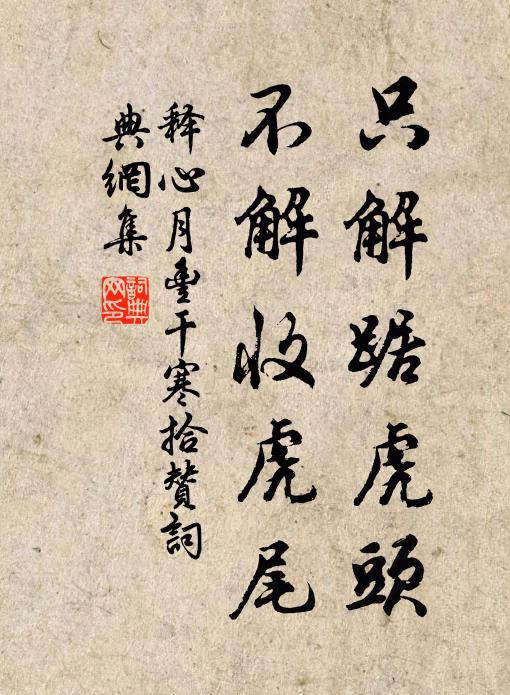 只解踞虎頭
不解收虎尾
释心月豐干寒拾赞詞
典網集
詞典
网印